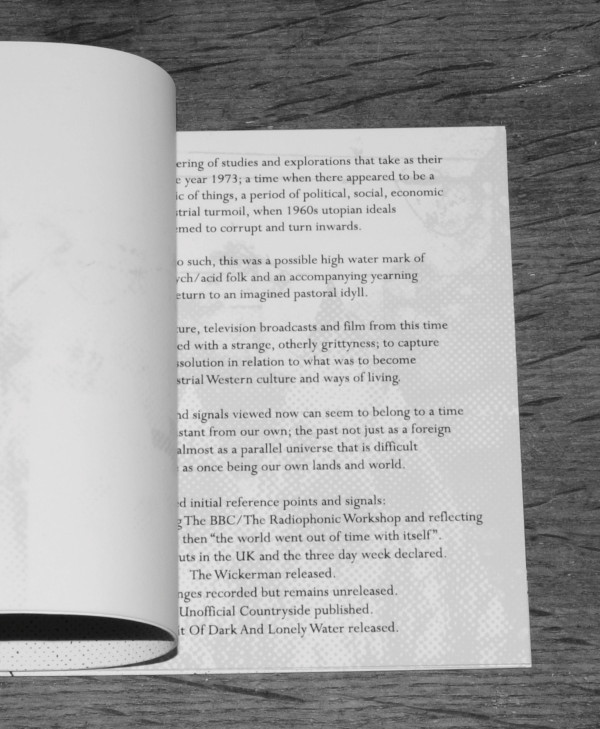 ering of studies and explorations that take as their
year 1973; a time when there appeared to be a
ic of things, a period of political, social, economic
strial turmoil, when 1960s utopian ideals
med to corrupt and turn inwards.
o such, this was a possible high water mark of
ych/acid folk and an accompanying yearning
eturn to an imagined pastoral idyll.
ure, television broadcasts and film from this time
ed with a strange, otherly grittyness; to capture
solution in relation to what was to become
strial Western culture and ways of living.
nd signals viewed now can seem to belong to a time
stant from our own; the past not just as a foreign
almost as a parallel universe that is difficult
as once being our own lands and world.
d initial reference points and signals:
g The BBC/The Radiophonic Workshop and reflecting
then “the world went out of time with itself”.
uts in the UK and the three day week declared.
The Wickerman released.
nges recorded but remains unreleased.
Unofficial Countryside published.
it Of Dark And Lonely Water released.